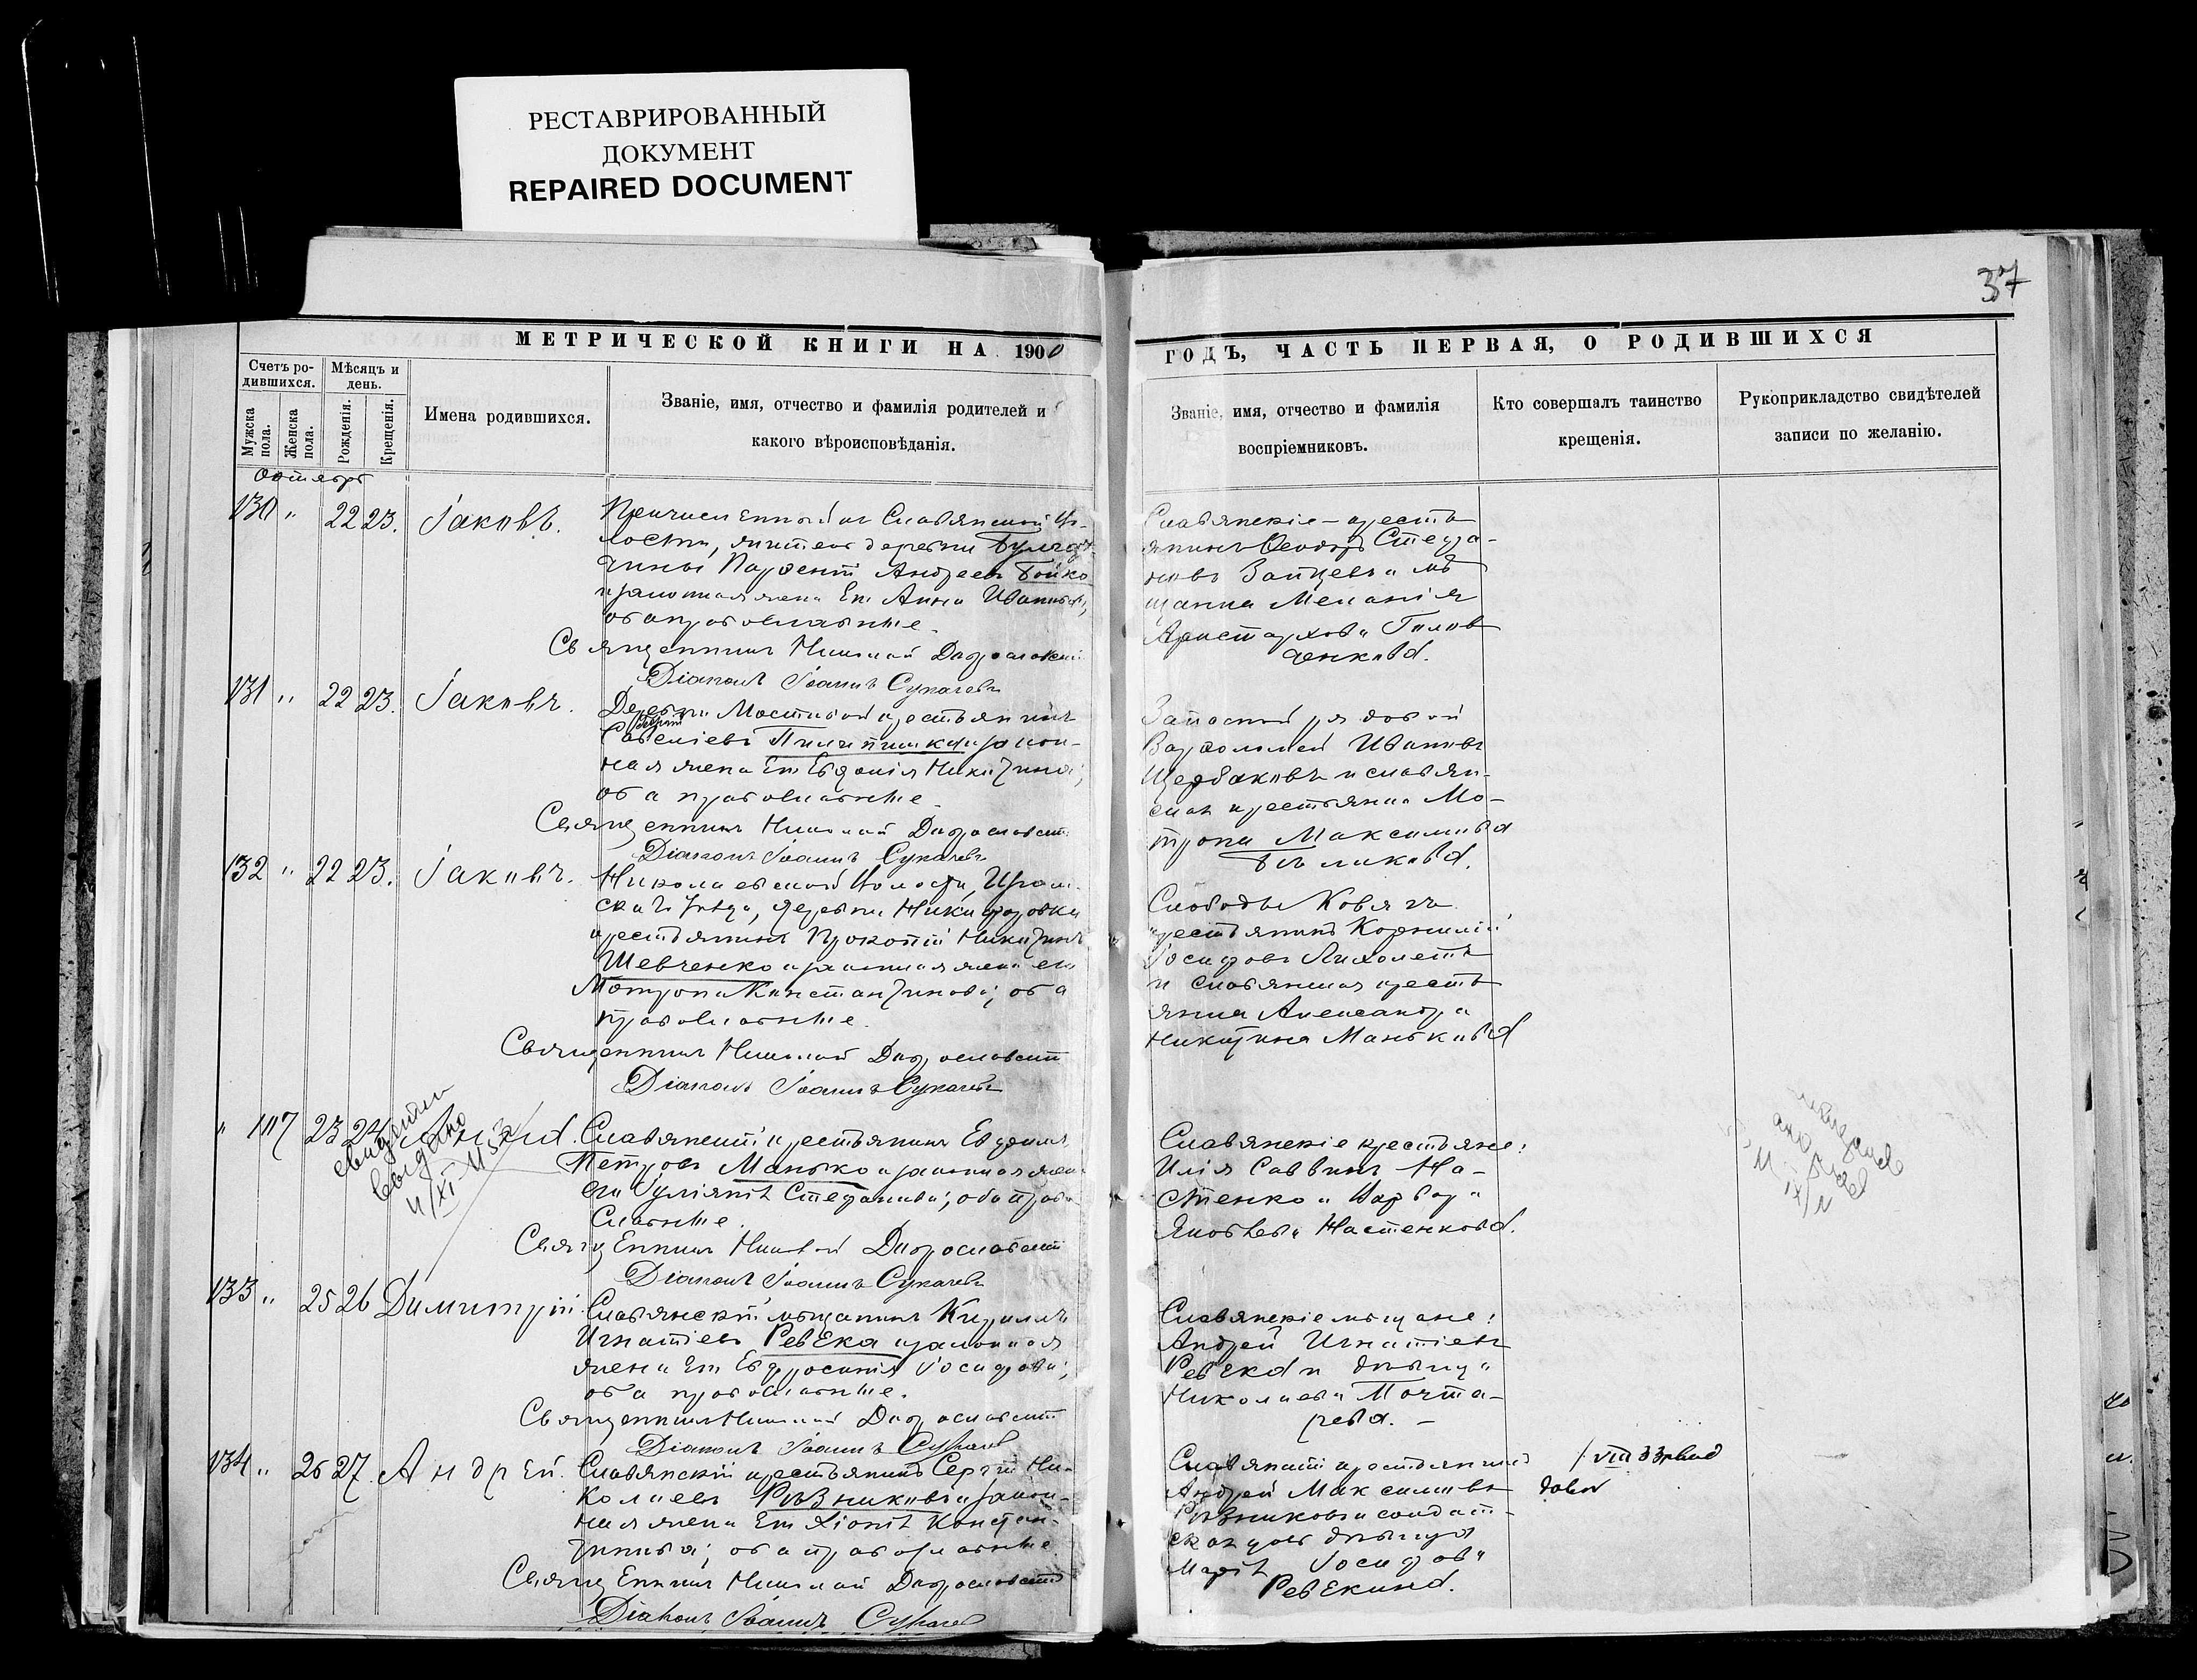 РЕСТАВРИРОВАННЫЙ
ДОКУМЕНТ
REPAIRED DOCUMENT
37
МЕТРИЧЕСКОЙ КНИГИ НА 1900
ГОДЪ, ЧАСТЬ ПЕРВАЯ, О РОДИВШИХСЯ
Счетъ ро-
дившихся.
Мѣсяцъ и
день.
Мужска
пола.
Женска
пола.
Рожденія.
Крещенія.
Имена родившихся.
Званіе, имя, отчество и фамилія родителей и
какого вѣроисповѣданія.
Званіе, имя, отчество и фамилія
воспріемниковъ.
Кто совершалъ таинство
крещенія.
Рукоприкладство свидѣтелей
записи по желанію.
Октябрь
130 " 22 23. Іаковъ.
Андреевъ Бойко
и законная жена его Анна Иванова;
оба православные.
Священникъ Николай
Діаконъ Іоаннъ Сукачевъ
Славянскіе - кресть
янинъ Ѳеодоръ Стефа-
новъ Зайцевъ и мѣ
щанка Меланія
Аристархова Голов
ченкова.
131 " 22 23. Іаковъ.
Деревни Мостовой крестьянинъ
Савеліевъ и закон-
ная жена его Евдокія Никитина;
оба православные.
Священникъ Николай
Діаконъ Іоаннъ Сукачевъ
Запасный рядовой
Варфоломей Ивановъ
Щербаковъ и славян-
ская крестьянка Мо-
трона Максимова
Бѣликова.
132 " 22 23. Іаковъ.
Николаевской волости, Изюм-
скаго уѣзда, деревни Никифоровки
крестьянинъ Прокопій Никитинъ
Шевченко и законная жена его
Мотрона Константинова; оба
православные.
Священникъ Николай
Діаконъ Іоаннъ Сукачевъ
Слободы
крестьянинъ Корнилій
Іосифовъ Лихолетъ
и славянская кресть
янка Александра
Никитина Манькова
" 117 23 24
выдано
Славянскій крестьянинъ Евфимъ
Петровъ Манько и законная жена
его Іуліанія Стефанова; оба право
славные.
Священникъ Николай
Діаконъ Іоаннъ Сукачевъ
Славянскіе крестьяне:
Илія Саввинъ На-
стенко и Варвара
Яковлева Настенкова.
133 " 25 26 Димитрій.
Славянскій мѣщанинъ Кириллъ
Игнатіевъ Ревека и законная
жена его Евфросинія Іосифова;
оба православные.
Священникъ Николай
Діаконъ Іоаннъ Сукачевъ
Славянскіе мѣщане:
Андрей Игнатіевъ
Ревека и дѣвица
Николаева Почта-
рева. -
134 " 26 27. Андрей.
Славянскій крестьянинъ Сергій Ни-
колаевъ Рѣзниковъ и закон-
ная жена его Хіонія Констан-
тинова; оба православные.
Священникъ Николай
Діаконъ Іоаннъ Сукачевъ
Славянскій крестьянинъ
Андрей Максимовъ
Рѣзниковъ и солдат-
ская дочь дѣвица
Марія Іосифова
Ревекина.